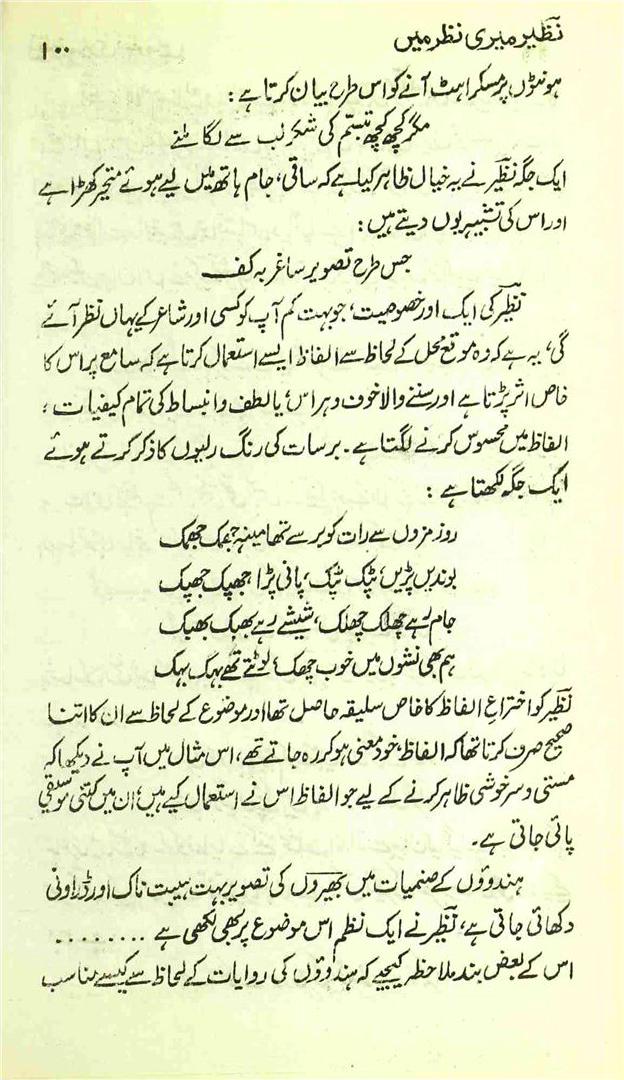 نظیر میری نظر میں
۱۰۰
ہونٹوں، پر مسکراہٹ آنے کو اس طرح بیان کرتا ہے :
مگر کچھ کچھ تبسّم کی شکر لب سے لگا ملنے
ایک جگہ نظیرؔ نے یہ خیال ظاہر کیا ہے کہ ساقی، جام ہاتھ میں لیے ہوئے متحیر کھڑا ہے
اور اس کی تشبیہ یوں دیتے ہیں :
جس طرح تصویر ساغر بہ کف
نظیرؔ کی ایک اور خصوصیت، جو بہت کم آپ کو کسی اور شاعر کے یہاں نظر آئے
گی، یہ ہے کہ وہ موقع محل کے لحاظ سے الفاظ ایسے استعمال کرتا ہے کہ سامع پر اس کا
خاص اثر پڑتا ہے اور سننے والا خوف و ہراس، یا لطف و انبساط کی تمام کیفیات،
الفاظ میں محسوس کرنے لگتا ہے۔ برسات کی رنگ رلیوں کا ذکر کرتے ہوئے
ایک جگہ لکھتا ہے :
روز مزوں سے رات کو برسے تھا مینہ جھمک جھمک
بوندیں پڑیں، ٹپک ٹپک، پانی پڑا جھپک جھپک
جام رہے چھلک چھلک، شیشے رہے بھبک بھبک
ہم بھی نشوں میں خوب چھک، لوٹتے تھے بہک بہک
نظیرؔ کو اختراع الفاظ کا خاص سلیقہ حاصل تھا اور موضوع کے لحاظ سے ان کا اتنا
صحیح صرف کرتا تھا کہ الفاظ، خود معنی ہو کر رہ جاتے تھے، اس مثال میں آپ نے دیکھا کہ
مستی و سرخوشی ظاہر کرنے کے لیے جو الفاظ اس نے استعمال کیے ہیں، ان میں کتنی موسیقی
پائی جاتی ہے۔
ہندوؤں کے صنمیات میں بھیروں کی تصویر بہت ہیبت ناک اور ڈراونی
دکھائی جاتی ہے، نظیرؔ نے ایک نظم اس موضوع پر بھی لکھی ہے ........
اس کے بعض بند ملاحظہ کیجیے کہ ہندوؤں کی روایات کے لحاظ سے کیسے مناسب